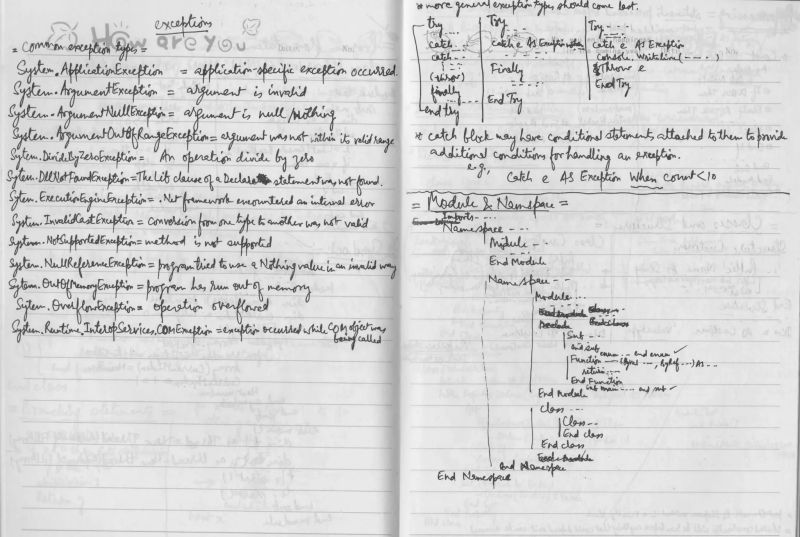 exceptions
How are you
= Common exception types =
System.ApplicationException = application-specific exception occurred.
System.ArgumentException = argument is invalid
System.ArgumentNullException = argument is null/nothing
System.ArgumentOutOfRangeException = argument was not within its valid range
System.DivideByZeroException = An operation divide by zero
System.DllNotFoundException = The Lib clause of a Declare statement was not found.
System.ExecutionEngineException = .Net framework encountered an internal error
System.InvalidCastException = Conversion from one type to another was not valid
System.NotSupportedException = method is not supported
System.NullReferenceException = program tried to use a Nothing value in an invalid way
System.OutOfMemoryException = program has run out of memory
System.OverflowException = operation overflowed
System.Runtime.InteropServices.COMException = exception occurred while COM object was
being called
* more general exception types should come last.
try
catch
catch
(throw)
finally
end try
Try
catch e As Exception
Finally
End Try
Try
catch e AS Exception
Console.WriteLine(----)
Throw e
End Try
* catch block may have conditional statements attached to them to provide
additional conditions for handling an exception.
e.g.,
Catch e AS Exception When count<10
= Module & Namspace =
Imports ---
Namespace ---
Module ---
End Module
Namespace ---
Module ---
Sub ---
end sub
enum --- end enum ✓
Function --- (byval ---, byref ---) As ---
return ---
End Function
sub main --- end sub ✓
End Module
Class ---
Class ---
End class
End class
End Namespace
End Namespace